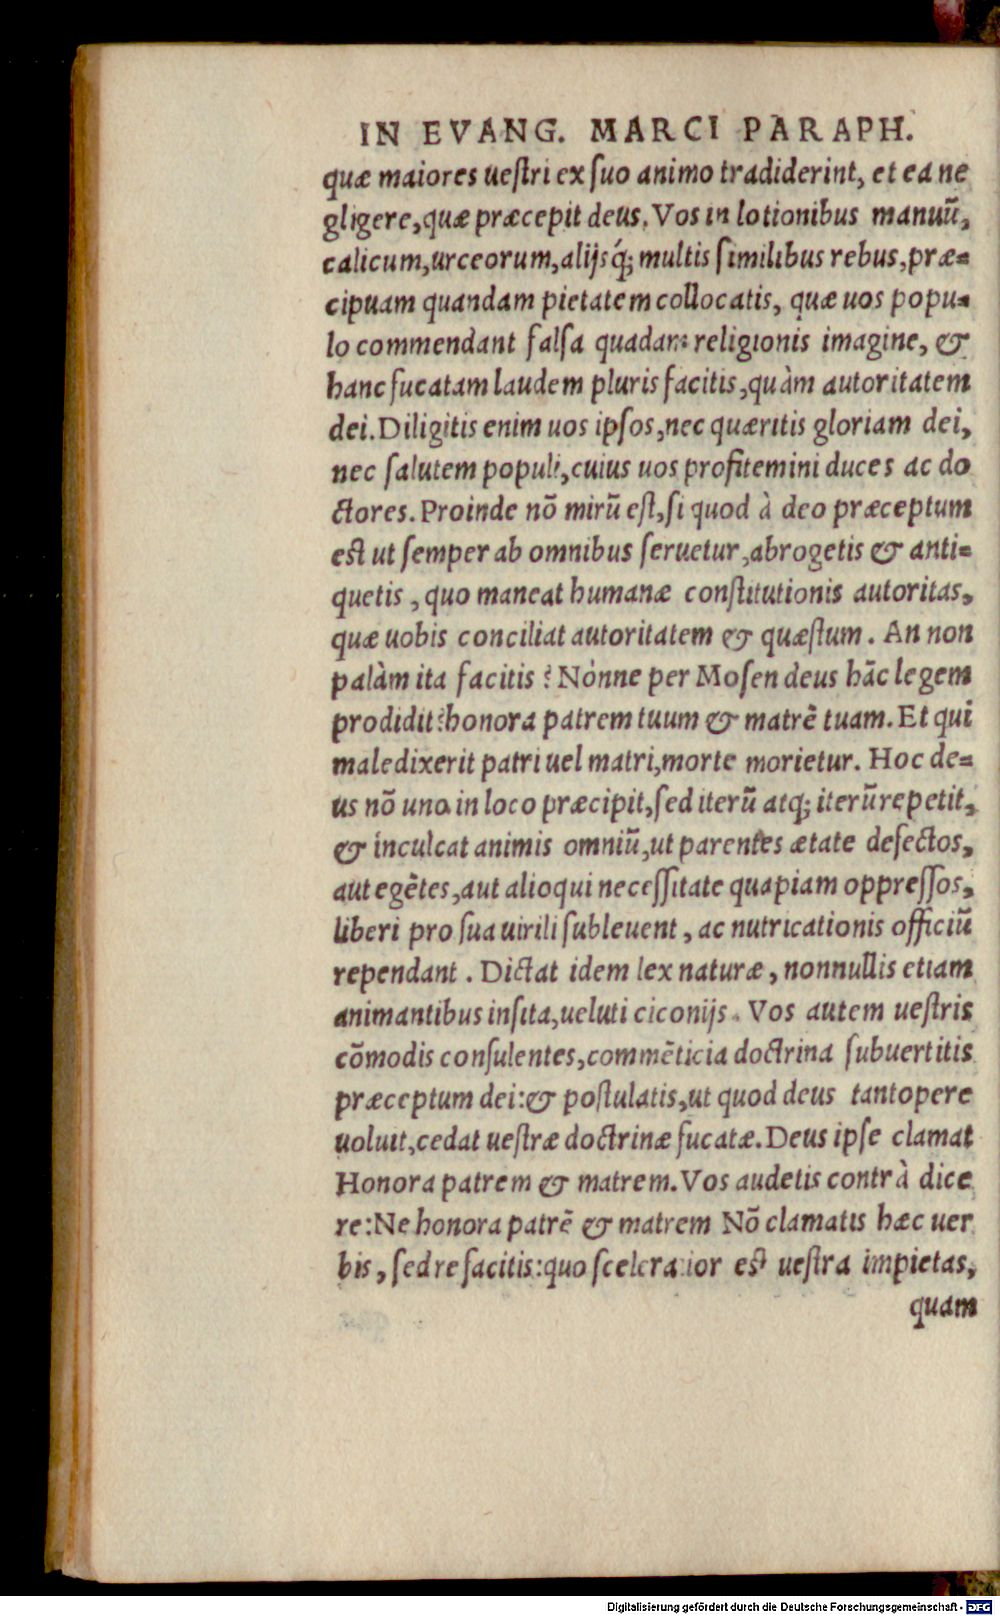 IN EVANG. MARCI PARAPH.
quæ maiores ueſtri ex ſuo animo tradiderint, et ea ne
gligere, quæ præcepit deus. Vos in lotionibus manuũ,
calicum, urceorum, alijsq́; multis ſimilibus rebus, præ=
cipuam quandam pietatem collocatis, quæ uos popu=
lo commendant falſa quadam religionis imagine, &
hanc fucatam laudem pluris facitis, quàm autoritatem
dei. Diligitis enim uos ipſos, nec quæritis gloriam dei,
nec ſalutem populi, cuius uos profitemini duces ac do
ctores. Proinde nõ mirũ eſt, ſi quod à deo præceptum
eſt ut ſemper ab omnibus ſeruetur, abrogetis & anti=
quetis, quo maneat humanæ conſtitutionis autoritas,
quæ uobis conciliat autoritatem & quæſtum. An non
palàm ita facitis? Nónne per Moſen deus hãc legem
prodidit? honora patrem tuum & matrẽ tuam. Et qui
maledixerit patri uel matri, morte morietur. Hoc de=
us nõ uno in loco præcipit, ſed iterũ atq; iterũ repetit,
& inculcat animis omniũ, ut parentes ætate defectos,
aut egẽtes, aut alioqui neceſſitate quapiam oppreſſos,
liberi pro ſua uirili ſubleuent, ac nutricationis officiũ
rependant. Dictat idem lex naturæ, nonnullis etiam
animantibus inſita, ueluti ciconijs. Vos autem ueſtris
cõmodis conſulentes, commẽticia doctrina ſubuertitis
præceptum dei: & poſtulatis, ut quod deus tantopere
uoluit, cedat ueſtræ doctrinæ fucatæ. Deus ipſe clamat
Honora patrem & matrem. Vos audetis contrà dice
re: Ne honora patrẽ & matrem Nõ clamatis hæc uer
bis, ſed re facitis: quo ſceleratior eſt ueſtra impietas,
quam
Digitalisierung gefördert durch die Deutsche Forschungsgemeinschaft - DFG